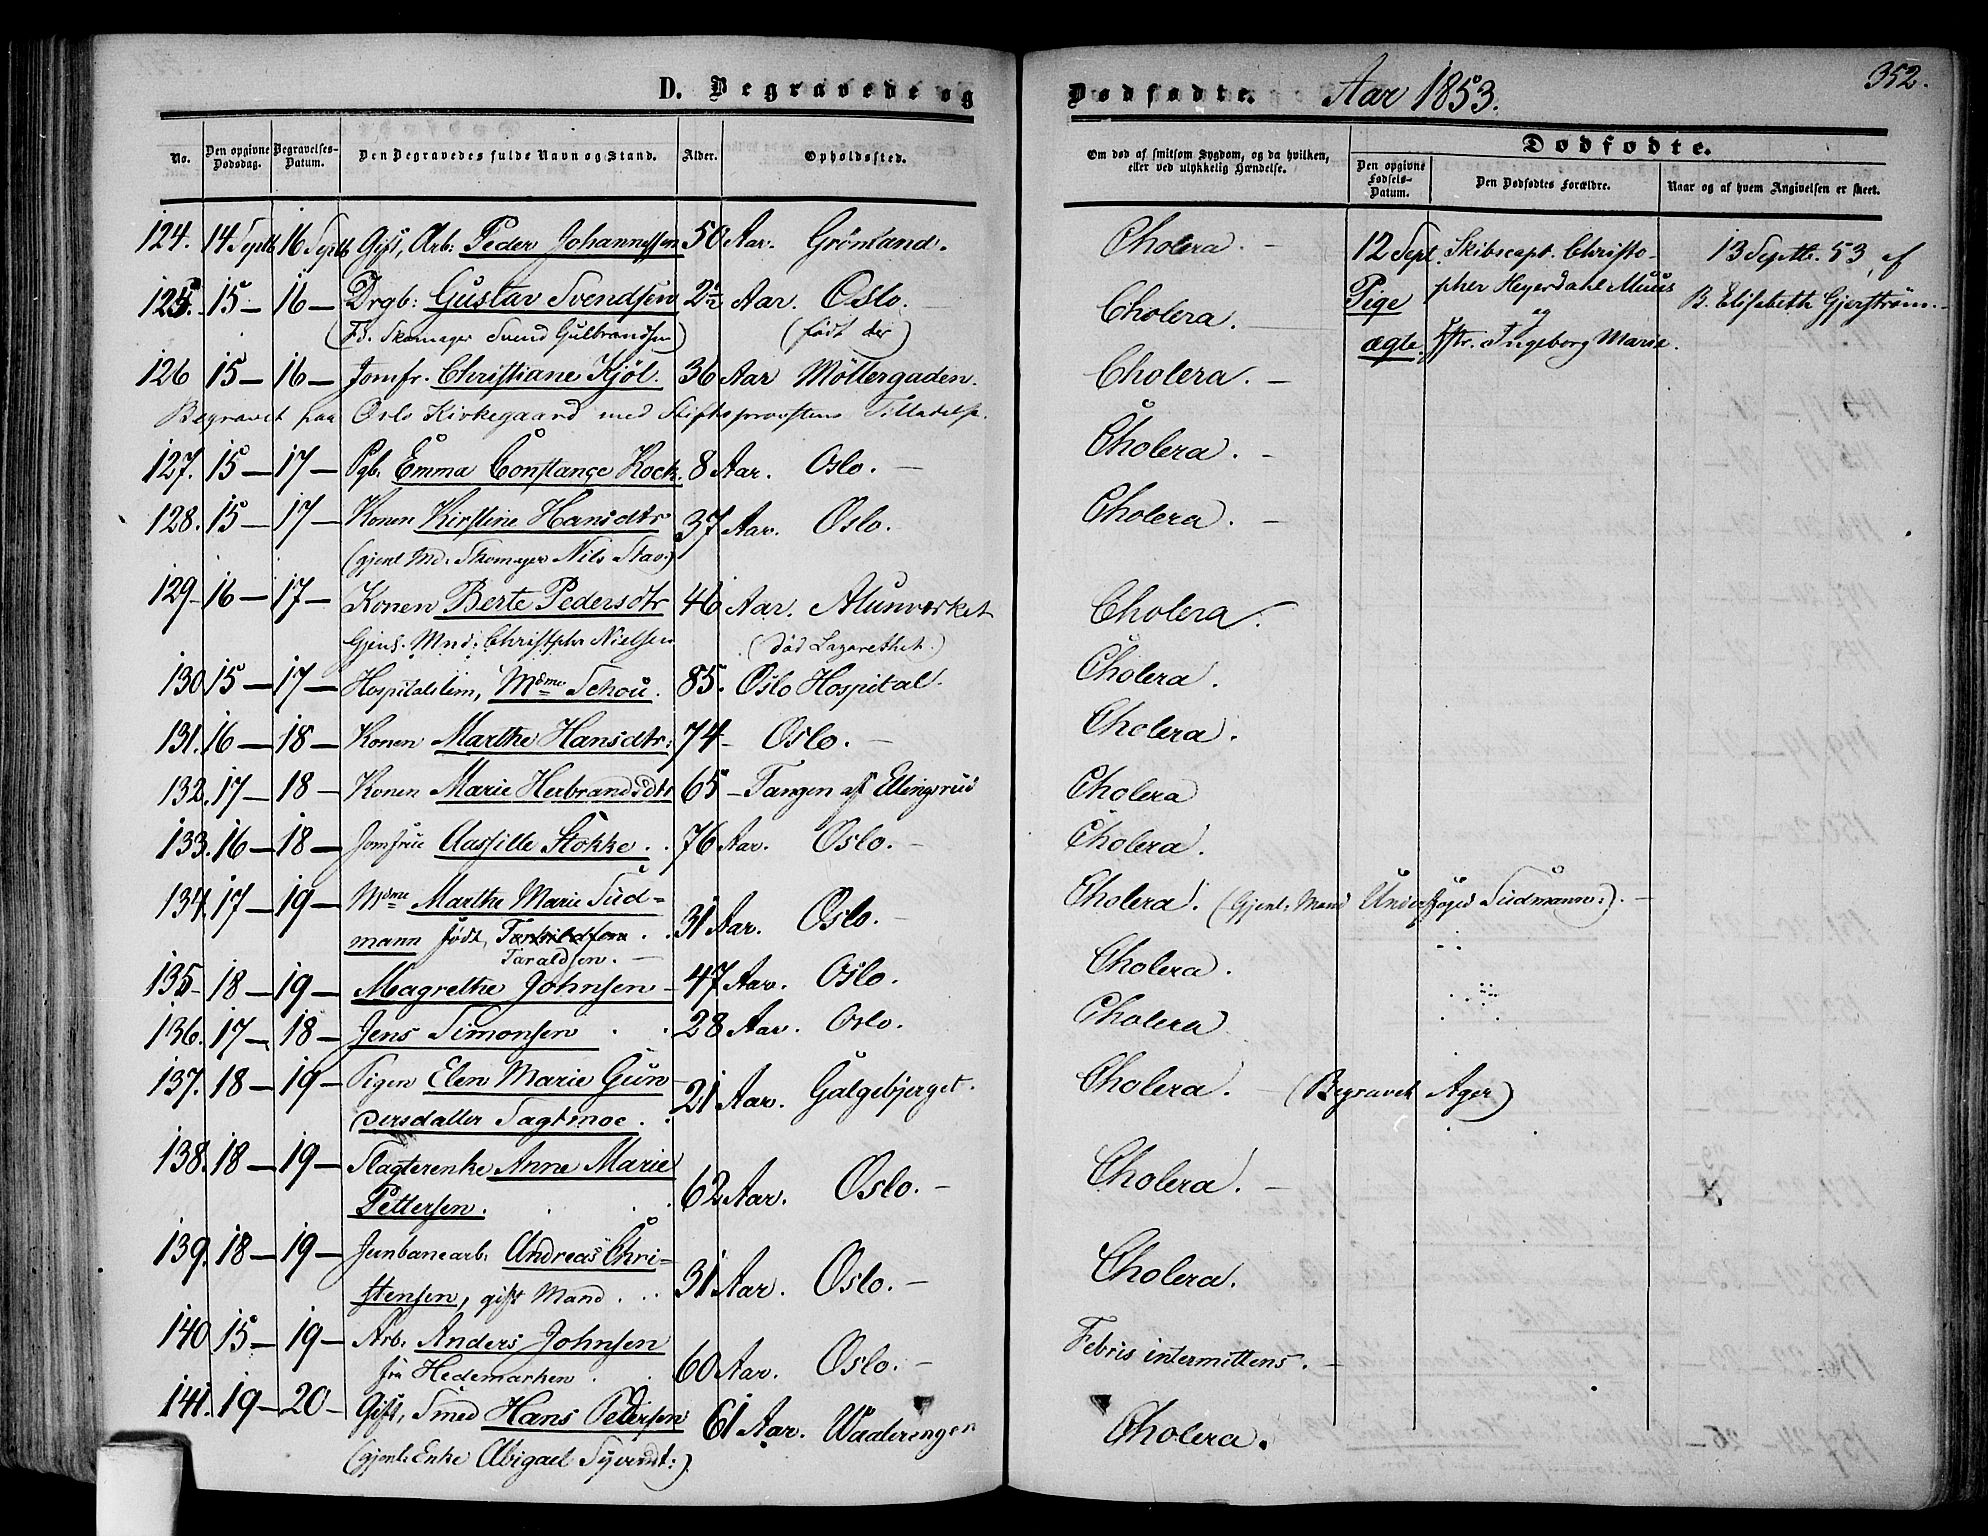 D. Begravede og Dødfødte. Aar 1853. 352.
No. Den opgivne Dødsdag. Begravelses-Datum. Den Begravedes fulde Navn og Stand. Alder. Opholdssted. Om død af smitsom Sygdom, og da hvilken, eller ved ulykkelig Hændelse. Dødfødte.
Den opgivne Fødsels-Datum. Den Dødfødtes Forældre. Naar og af hvem Angivelsen er skeet.
124. 14 Septb 16 Septb Gift, Arb: Peder Johannessen 50 Aar. Grönland. Cholera. — 12 Sept. Skibscapt. Christo- 13 Septb. 53, af
pher Heyerdahl Muus B. Elisabeth Gjerström.
Pige og
ægte. Hstr. Ingeborg Marie.
125. 15 — 16 — Drgb: Gustav Svendsen 2½ Aar. Oslo. — Cholera.
(Fd. Skomager Svend Gulbrandsen) (født der)
126 15 — 16 — Jomfr. Christiane Kjöl. 36 Aar Möllergaden. Cholera. —
Begravet paa Oslo Kirkegaard med Stiftsprovstens Tilladelse.
127. 15 — 17 — Pgb. Emma Constance Kock. 8 Aar. Oslo. — Cholera. —
128. 15 — 17 — Konen Kirstine Hansdtr 37 Aar. Oslo. Cholera. —
(gjenl Md: Skomager Nils Stav.)
129 — 16 — 17 — Konen Berte Pedersdtr 46 Aar. Alunværket Cholera.
Gjenl. Mnd: Christphr Nielsen (død Lazarethet.)
130 15 — 17 — Hospitalslem, Mdme Schou. 85. Oslo Hospital. Cholera.
131. 16 — 18 — Konen Marthe Hansdtr: 74 — Oslo. — Cholera.
132. 17 — 18 — Konen Marie Herbrandsdtr 65 — Tangen af Ellingsrud Cholera
133. 16 — 18 — Jomfrue Aassille Stokke. 76 Aar. Oslo. — Cholera.
134. 17 — 19 — Mdme Marthe Marie Sud-
mann født, Torkildsen 31 Aar. Oslo. — Cholera. (Gjenl: Mand Underfoged Sudmann:). —
Taraldsen. —
135 — 18 — 19 — Magrethe Johnsen — 47 Aar. Oslo. Cholera.
136. 17 — 18 — Jens Simonsen 28 Aar. Oslo. Cholera
137. 18 — 19 — Pigen Elen Marie Gun-
dersdatter Sagtmoe. 21 Aar. Galgebjerget. Cholera. — (Begravet Ager)
138. 18 — 19 — Slagterenke Anne Marie
Pettersen. 62 Aar. Oslo. — Cholera. —
139. 18 — 19 — Jernbanearb. Andreas Chri-
stensen, gift Mand. 31 Aar. Oslo. — Cholera.
140 15 — 19 — Arb: Anders Johnsen
fra Hedemarken. 60 Aar. Oslo. — Febris intermittens. —
141. 19 — 20 — Gift, Smed Hans Pedersen 61 Aar. Waalerengen Cholera.
(gjenl: Enke Abigael Syverdt:)